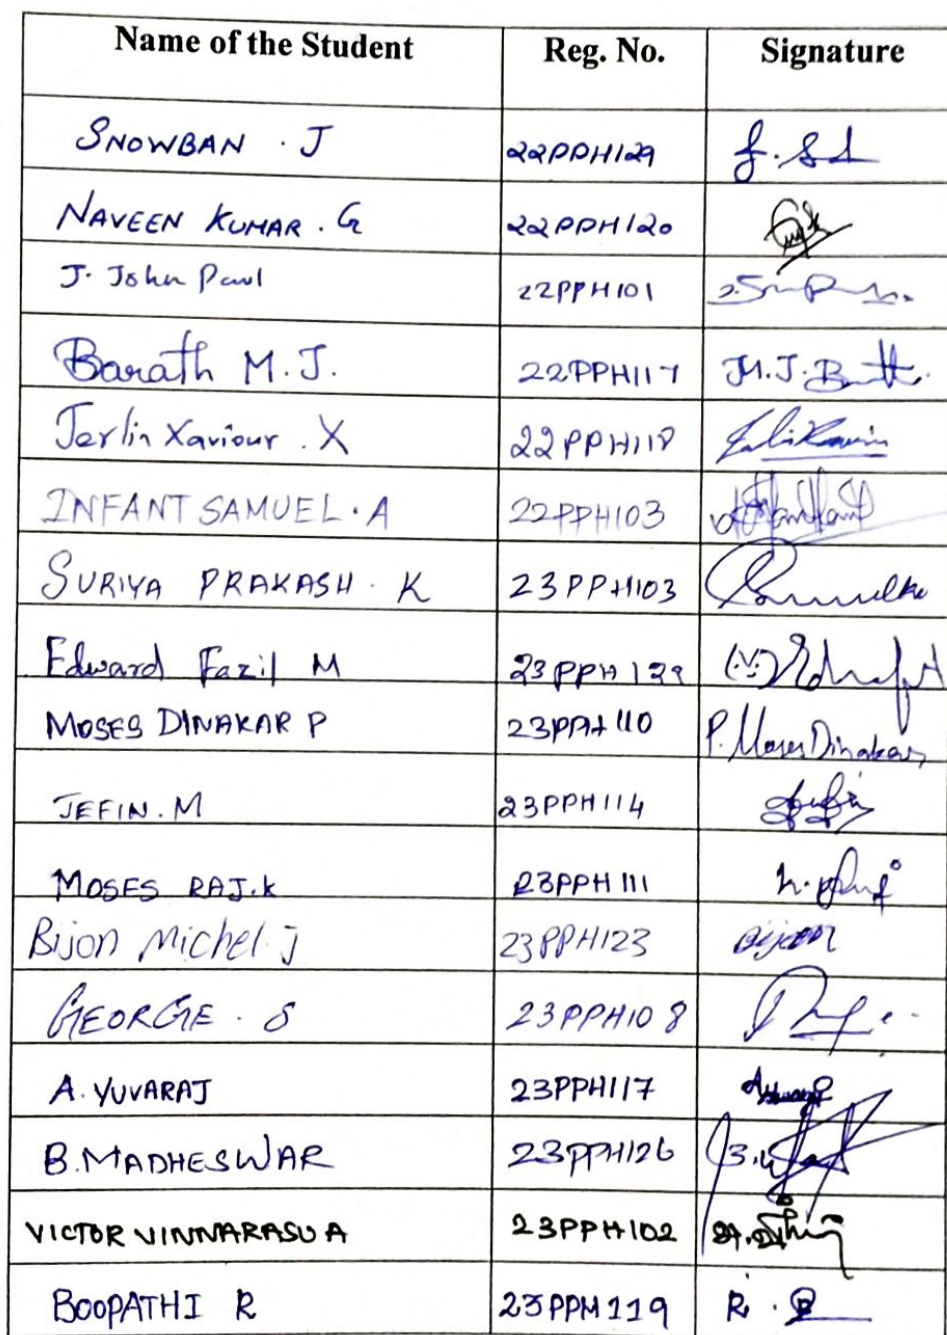 Name of the Student Reg. No. Signature
SNOWBAN . J 22PPH129
NAVEEN KUMAR . G 22PPH120
J. John Paul 22PPH101
Barath M.J. 22PPH117 M.J.
Jerlin Xaviour . X 22PPH118
INFANT SAMUEL . A 22PPH103
SURIYA PRAKASH . K 23PPH103
Edward Fazil M 23PPH129
MOSES DINAKAR P 23PPH110 P. Moses Dinakar
JEFIN . M 23PPH114
MOSES RAJ.K 23PPH111
Bijon Michel J 23PPH123 Bijon
GEORGE . S 23PPH108
A. YUVARAJ 23PPH117
B. MADHESWAR 23PPH126
VICTOR VINNARASU A 23PPH102
BOOPATHI R 23PPH119 R.